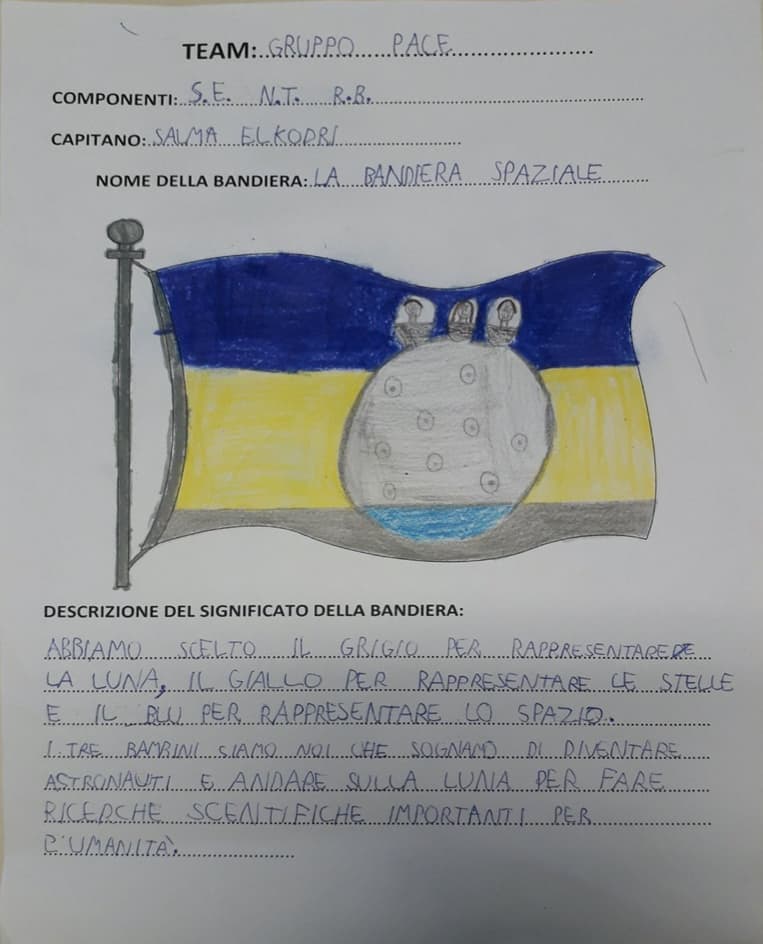 TEAM: GRUPPO PACE
COMPONENTI: S.E. N.T. R.B.
CAPITANO: SALMA ELKODRI
NOME DELLA BANDIERA: LA BANDIERA SPAZIALE
DESCRIZIONE DEL SIGNIFICATO DELLA BANDIERA:
ABBIAMO SCELTO IL GRIGIO PER RAPPRESENTARE
LA LUNA, IL GIALLO PER RAPPRESENTARE LE STELLE
E IL BLU PER RAPPRESENTARE LO SPAZIO.
I TRE BAMBINI SIAMO NOI CHE SOGNAMO DI DIVENTARE
ASTRONAUTI E ANDARE SULLA LUNA PER FARE
RICERCHE SCENTIFICHE IMPORTANTI PER
L'UMANITÀ.